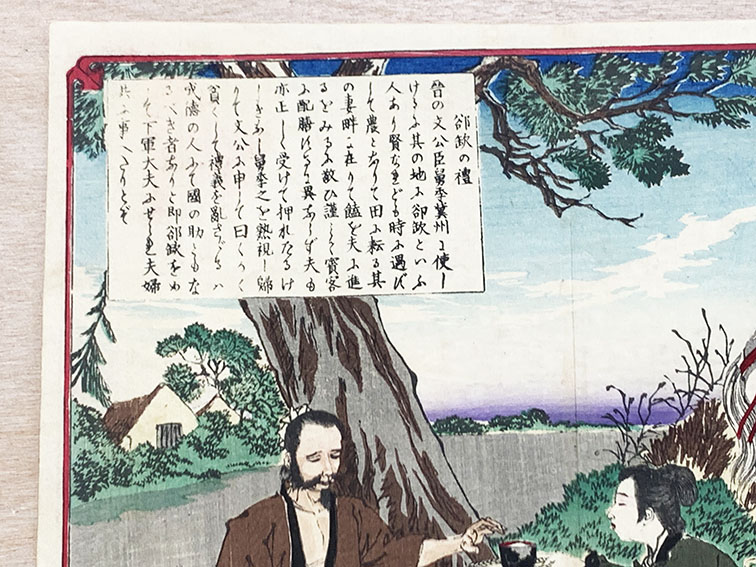 郤缺の禮
晉の文公臣舅季冀州に使し
けるに其の地に郤缺といふ
人あり賢なれども時に遇ず
して農となりて田に耘る其
の妻畔に在りて饁を夫に進
るをみるに敬ひ謹しみ賓客
に配膳けるに異ならず夫も
亦正しく受けて押れたるけ
しきなし舅季之を熟視し歸
りて文公に申して曰くかく
貧くして禮義を亂さゞるハ
の人にて國の助ともな
るべき者なりと即郤缺をめ
して下軍大夫にせられ夫婦
共に事へたりとぞ